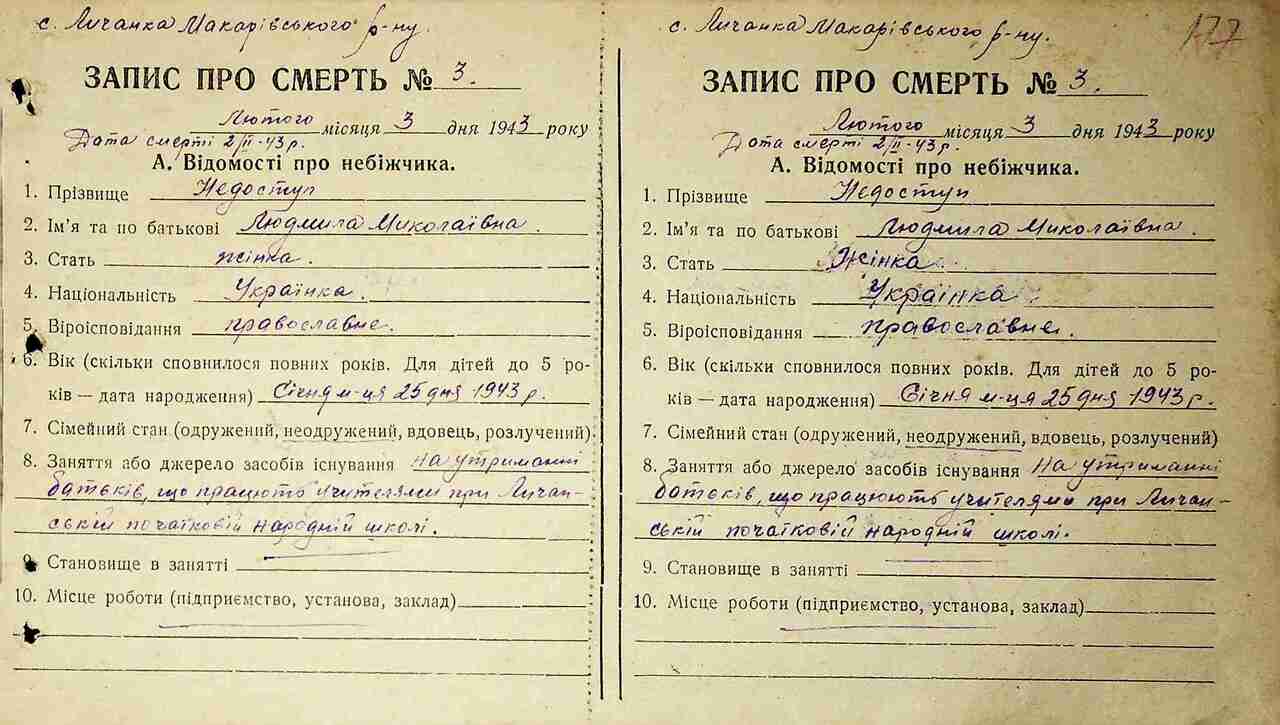 с. Личанка Макарівського р-ну.
ЗАПИС ПРО СМЕРТЬ № 3.
Лютого місяця 3 дня 1943 року
Дата смерті 2/II-43 р.
А. Відомості про небіжчика.
1. Прізвище Недоступ
2. Ім'я та по батькові Людмила Миколаївна.
3. Стать жінка.
4. Національність Українка.
5. Віроісповідання православне.
6. Вік (скільки сповнилося повних років. Для дітей до 5 ро-
ків — дата народження) Січня м-ця 25 дня 1943 р.
7. Сімейний стан (одружений, неодружений, вдовець, розлучений)
8. Заняття або джерело засобів існування На утриманні
батьків, що працюють учителями при Личан-
ській початковій народній школі.
9. Становище в занятті
10. Місце роботи (підприємство, установа, заклад)
с. Личанка Макарівського р-ну.
177
ЗАПИС ПРО СМЕРТЬ № 3.
Лютого місяця 3 дня 1943 року
Дата смерті 2/II-43 р.
А. Відомості про небіжчика.
1. Прізвище Недоступ
2. Ім'я та по батькові Людмила Миколаївна.
3. Стать Жінка.
4. Національність Українка.
5. Віроісповідання православне.
6. Вік (скільки сповнилося повних років. Для дітей до 5 ро-
ків — дата народження) Січня м-ця 25 дня 1943 р.
7. Сімейний стан (одружений, неодружений, вдовець, розлучений)
8. Заняття або джерело засобів існування На утриманні
батьків, що працюють учителями при Личан-
ській початковій народній школі.
9. Становище в занятті
10. Місце роботи (підприємство, установа, заклад)